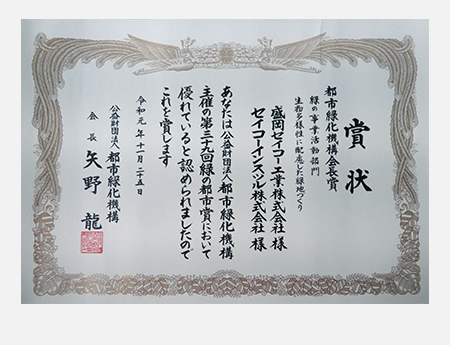 賞状
都市緑化機構会長賞
緑の事業活動部門
生物多様性に配慮した緑地づくり
盛岡セイコー工業株式会社 様
セイコーインスツル株式会社 様
あなたは公益財団法人都市緑化機構
主催の第三十九回緑の都市賞において
優れていると認められましたので
これを賞します
令和元年十一月二十五日
公益財団法人 都市緑化機構
会長 矢野 龍